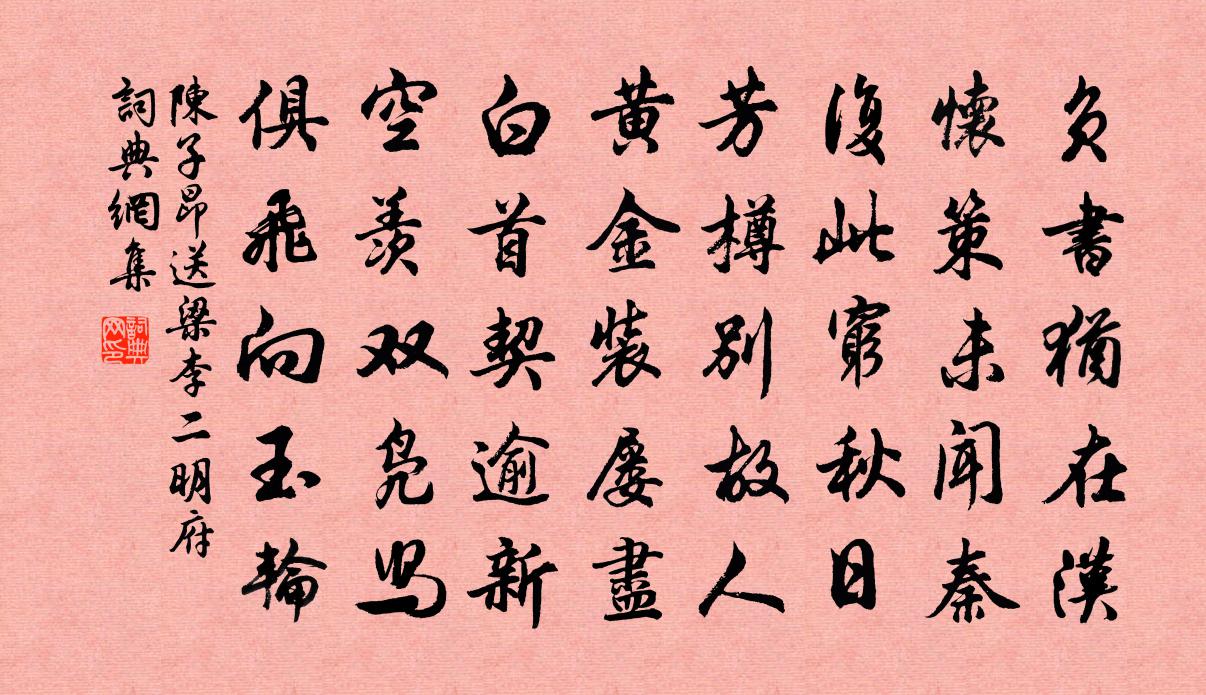 负書猶在漢
懷策未聞秦
復此窮秋日
芳樽別故人
黃金裝屢盡
白首契逾新
空羨双凫舄
俱飛向玉輪
陳子昂送梁李二明府
詞典網集
詞典
网印